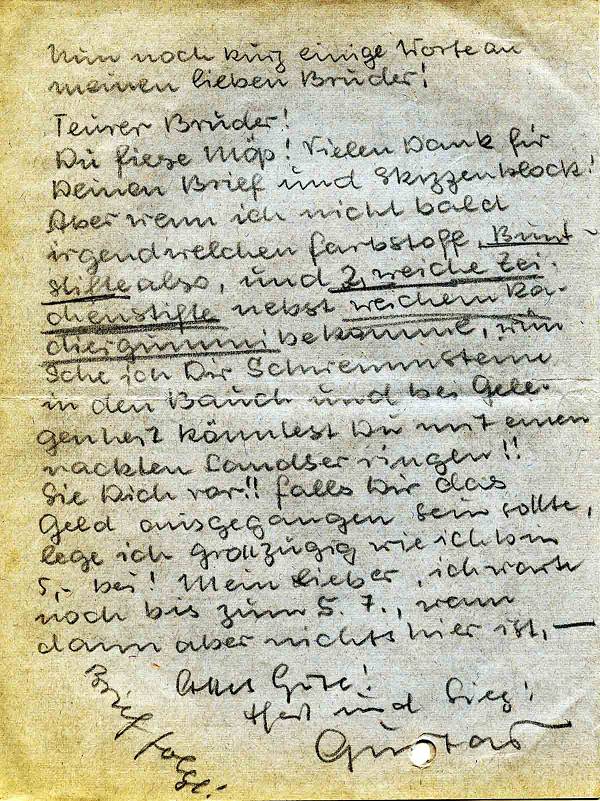 Nun noch kurz einige Worte an
meinen lieben Bruder!
Teurer Bruder!
Du fiese Möp! Vielen Dank für
Deinen Brief und Skizzenblock!
Aber wenn ich nicht bald
irgendwelchen Farbstoff, Bunt-
stifte also, und 2 weiche Zei-
chenstifte nebst weichem Ra-
diergummi bekomme, wün
sche ich Dir Schwemmsteine
in den Bauch und bei Gele-
genheit könntest Du mit einem
nackten Landser ringen!!
Sie Dich vor!! Falls Dir das
Geld ausgegangen sein sollte,
lege ich großzügig wie ich bin
5,- bei! Mein lieber, ich warte
noch bis zum 5. 7., wenn
dann aber nichts hier ist, —
Alles Gute!
Heil und Sieg!
Gustav
Brief folgt!